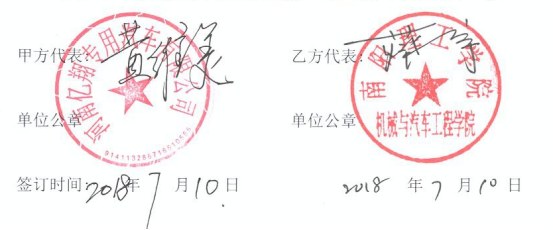 甲方代表： 乙方代表：
河南亿翔专用汽车有限公司
南阳理工学院
机械与汽车工程学院
单位公章 单位公章
签订时间：2018年7月10日 2018年7月10日